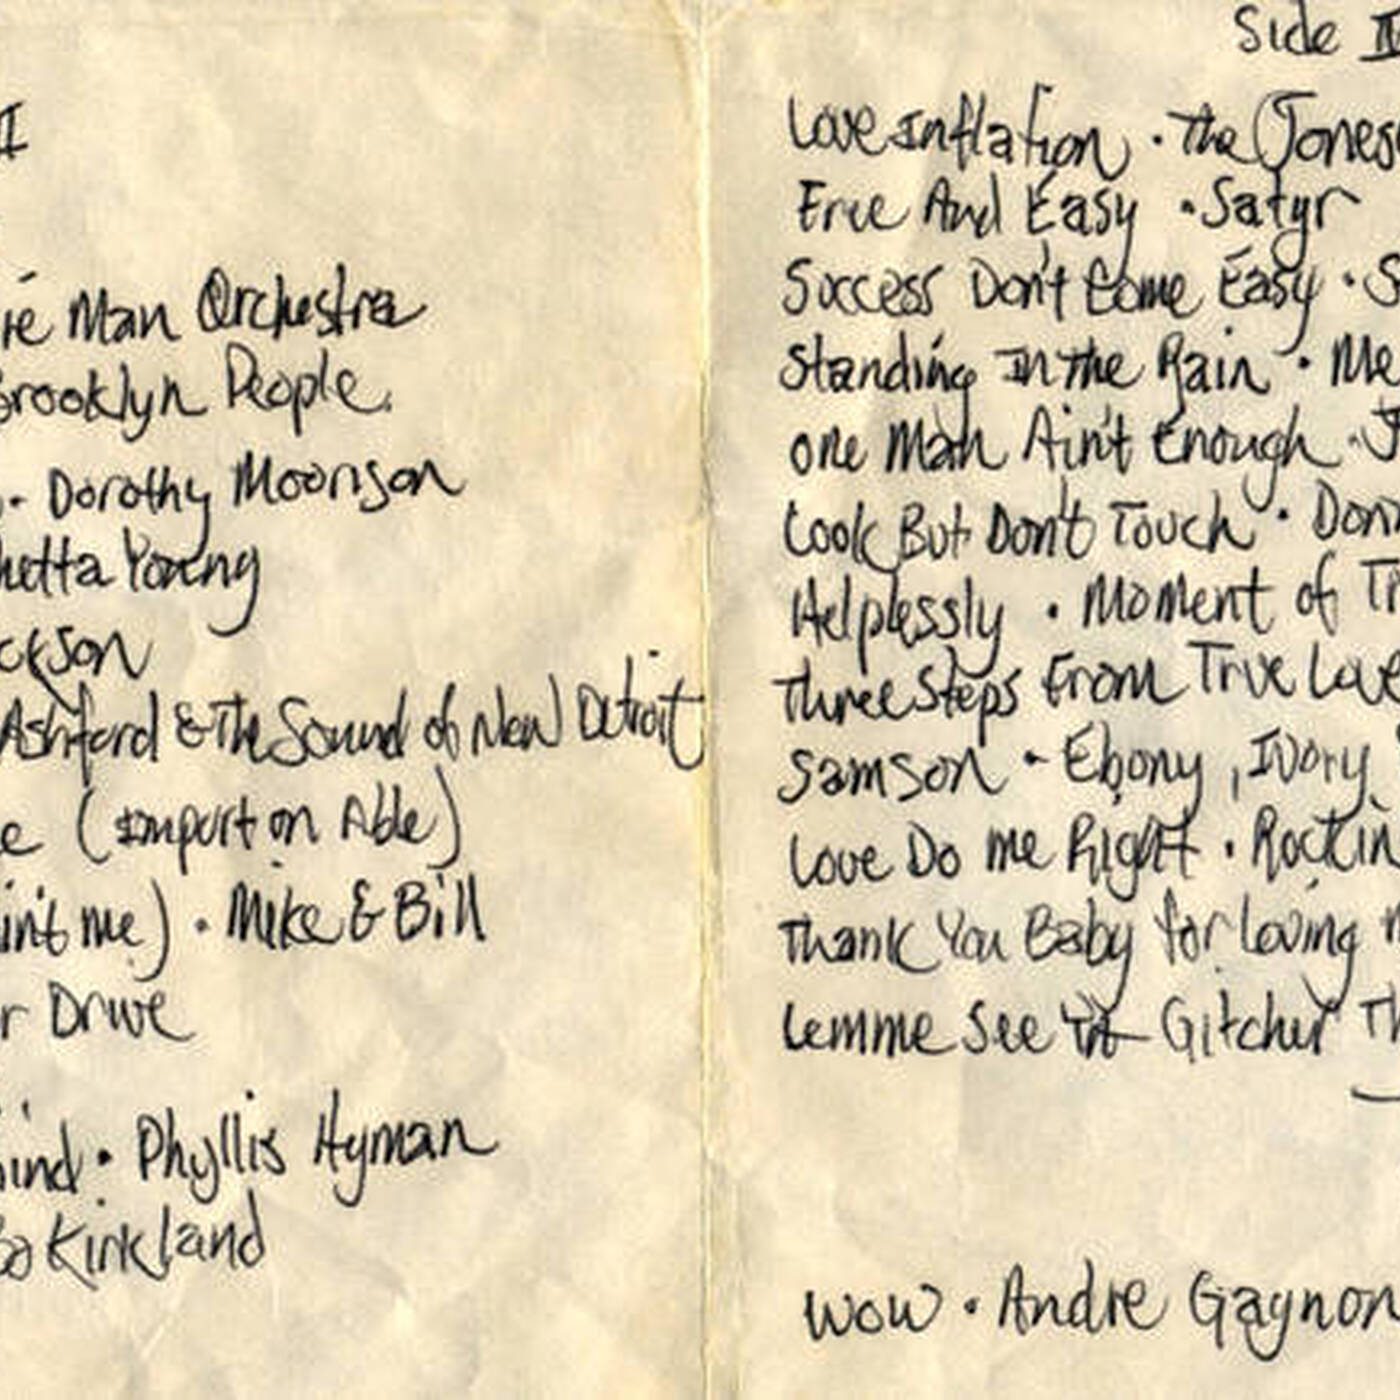 II
ie Man Orchestra
Brooklyn People.
. Dorothy Moorison
hetta Young
ckson
Ashford & The Sound of New Detroit
e (import on Able)
in't me) . Mike & Bill
r Drive
ind . Phyllis Hyman
Bo Kirkland
Side II
Love Inflation . The Jones
Free And Easy . Satyr
Success Don't Come Easy . S
Standing In The Rain . Me
One Man Ain't Enough . J
Look But Don't Touch . Don
Helplessly . Moment of Tr
Three Steps From True Love
Samson - Ebony, Ivory
Love Do me Right . Rockin
Thank You Baby for Loving m
Lemme See Gitcher Th
Wow . Andre Gagnon